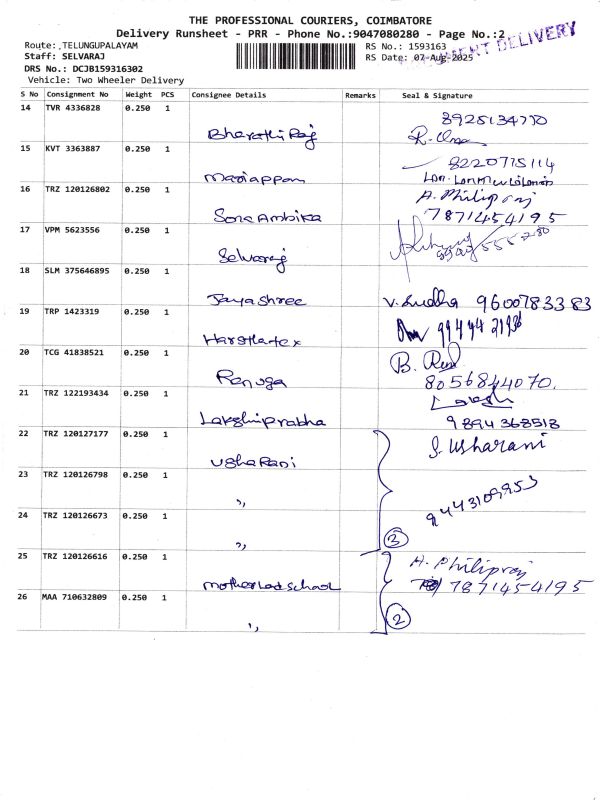 THE PROFESSIONAL COURIERS, COIMBATORE
Delivery Runsheet - PRR - Phone No.:9047080280 - Page No.:2
Route: TELUNGUPALAYAM
RS No.: 1593163
DELIVERY
Staff: SELVARAJ
RS Date: 07-Aug-2025
DRS No.: DCJB159316302
Vehicle: Two Wheeler Delivery
S No Consignment No Weight PCS Consignee Details Remarks Seal & Signature
14 TVR 4336828 0.250 1
Bharathi Raj
15 KVT 3363887 0.250 1
8220775114
Mariappan
16 TRZ 120126802 0.250 1 A. Philipraj
Sona Ambika 7871454195
17 VPM 5623556 0.250 1
Selvaraj
18 SLM 375646895 0.250 1
Jayashree V. Sudha 9600783383
19 TRP 1423319 0.250 1
20 TCG 41838521 0.250 1
Renuga 8056844070.
21 TRZ 122193434 0.250 1
Lakshiprabha 9894368518
22 TRZ 120127177 0.250 1 S. Usharani
Usha Rani
23 TRZ 120126798 0.250 1
,, 9443109953
24 TRZ 120126673 0.250 1
,, 3
25 TRZ 120126616 0.250 1 A. Philipraj
7871454195
26 MAA 710632809 0.250 1
,, 2